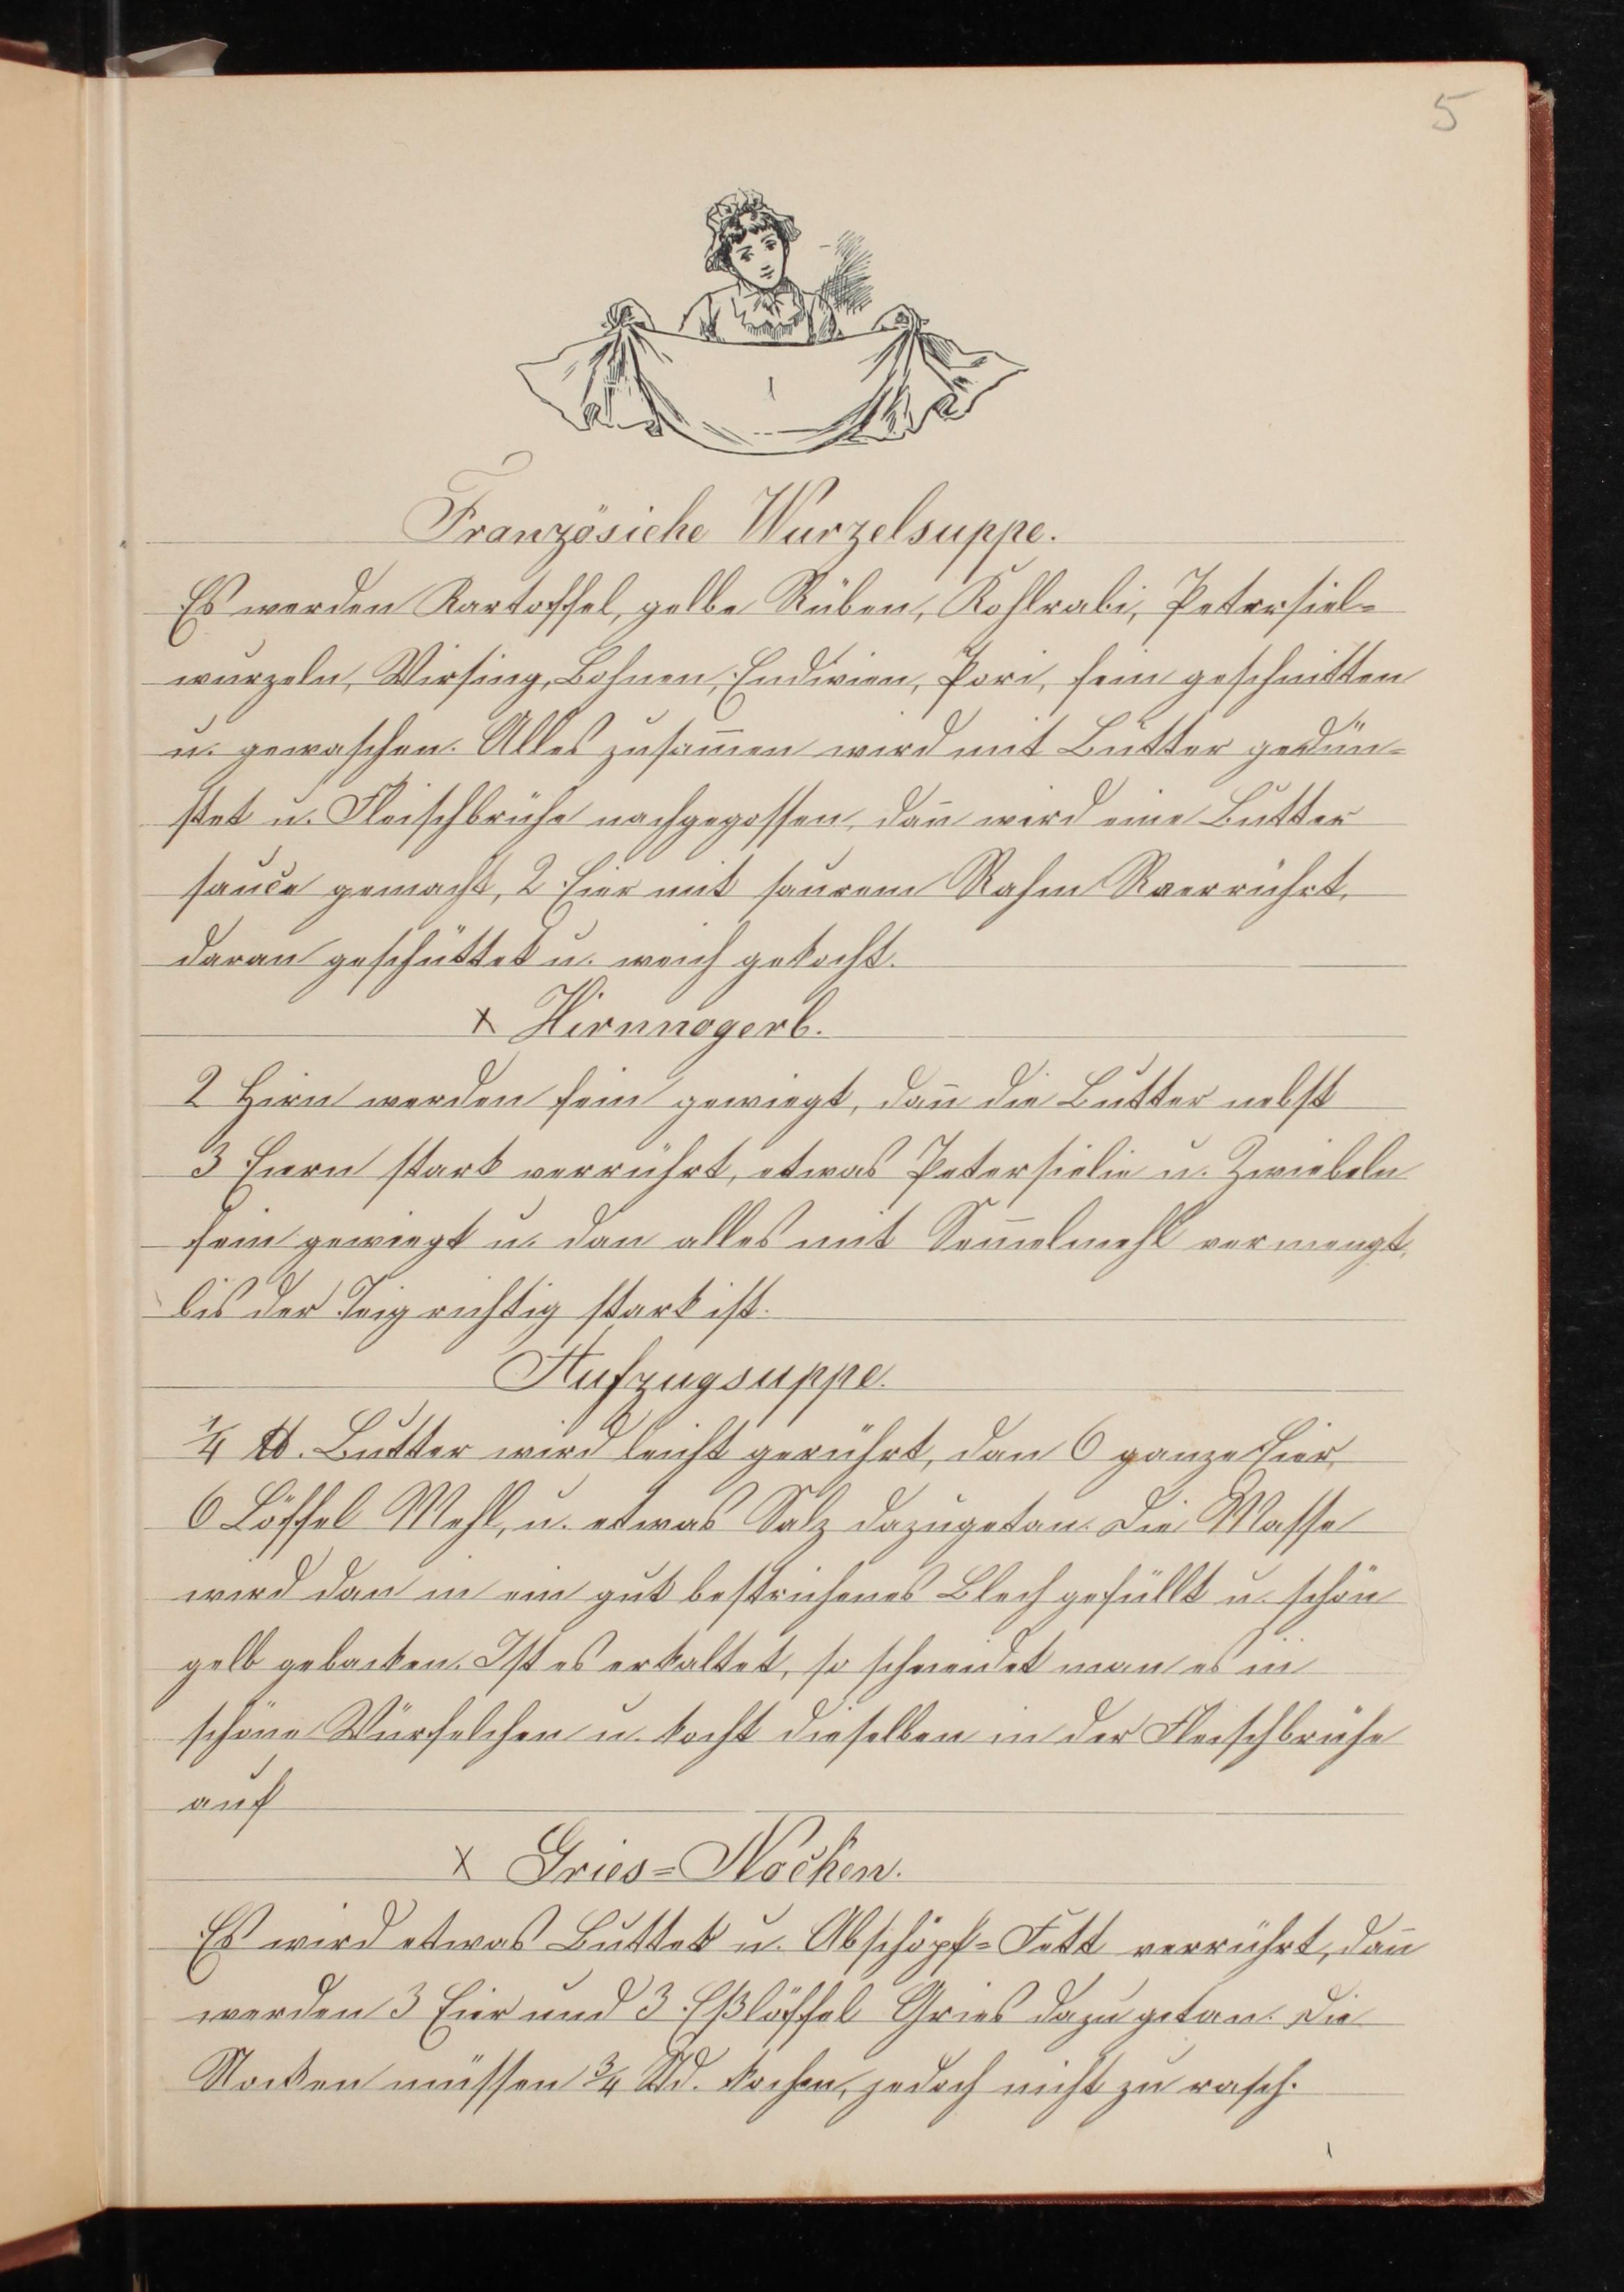 5
Französiche Wurzelsuppe.
Es werden Kartoffel, gelbe Rüben, Kohlrabi, Petersiel-
wurzeln, Wirsing, Bohnen, Endivien, Pori, fein geschnitten
u. gewaschen. Alles zusam̄en wird mit Butter gedün-
stet u. Fleischbrühe nachgegossen, dan̄ wird eine Butter
sauce gemacht, 2 Eier mit saurem Rahm verrührt,
daran geschüttet u. weich gekocht.
x Hirnnogerl.
2 Hirn werden fein gewiegt, dan̄ die Butter nebst
3 Eiern stark verrührt, etwas Petersielie u. Zwiebeln
fein gewiegt u. dan alles mit Sem̄elmehl vermengt,
bis der Teig richtig stark ist.
Aufzugsuppe.
1/4 ℔. Butter wird leicht gerührt, dan 6 ganze Eier,
6 Löffel Mehl, u. etwas Salz dazugetan. Die Masse
wird dan in ein gut bestrichenes Blech gefüllt u. schön
gelb gebacken. Ist es erkaltet, so schneidet man es in
schöne Würfelchen u. kocht dieselben in der Fleischbrühe
auf
x Gries-Nocken.
Es wird etwas Butter u. Abschöpf-Fett verrührt, dan̄
werden 3 Eier und 3 Eßlöffel Gries dazu getan. Die
Nocken müssen 3/4 Std. kochen, jedoch nicht zu rasch.